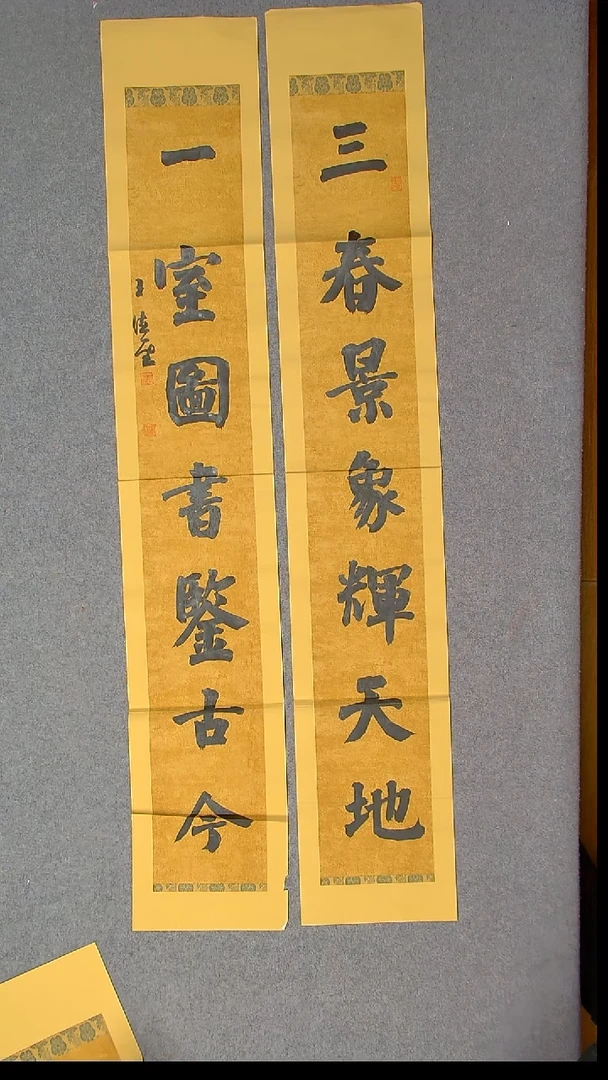 三春景象輝天地
一室圖書鑒古今